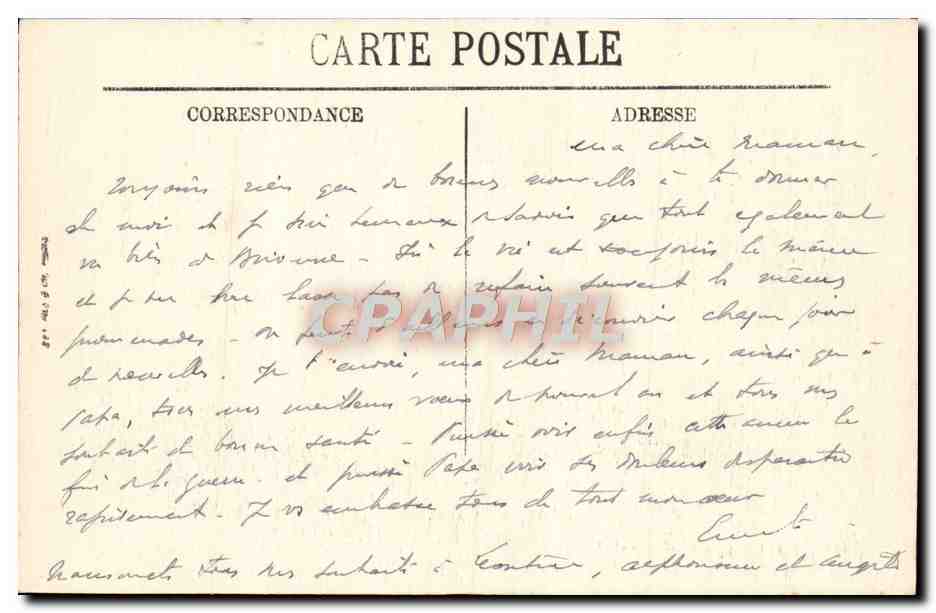 CARTE POSTALE
CORRESPONDANCE
ADRESSE
ma chère Maman,
Toujours rien que de bonnes nouvelles à te donner
de moi et je suis heureux de savoir que tout également
va bien à Brionne - Ici la vie est toujours la même
et je ne me lasse pas de refaire souvent les mêmes
promenades - on peut d'ailleurs en découvrir chaque jour
de nouvelles. Je t'envoie, ma chère Maman, ainsi qu'à
Papa, tous mes meilleurs voeux de nouvel an et tous mes
souhaits de bonne santé - Puissé voir enfin cette année la
fin de la guerre et puisse Papa voir ses douleurs disparaître
rapidement. Je vs embrasse tous de tout mon coeur
Transmets tous mes souhaits à Alphonsine et
CPAPHIL